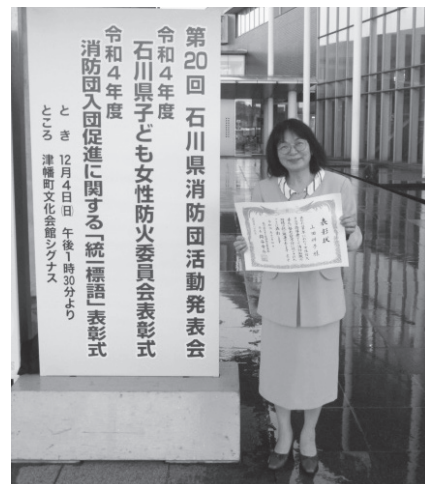 第20回 石川県消防団活動発表会
令和4年度
石川県子ども女性防火委員会表彰式
令和4年度
消防団入団促進に関する「統一標語」表彰式
と き 12月4日㈰ 午後1時30分より
ところ 津幡町文化会館シグナス
表彰状